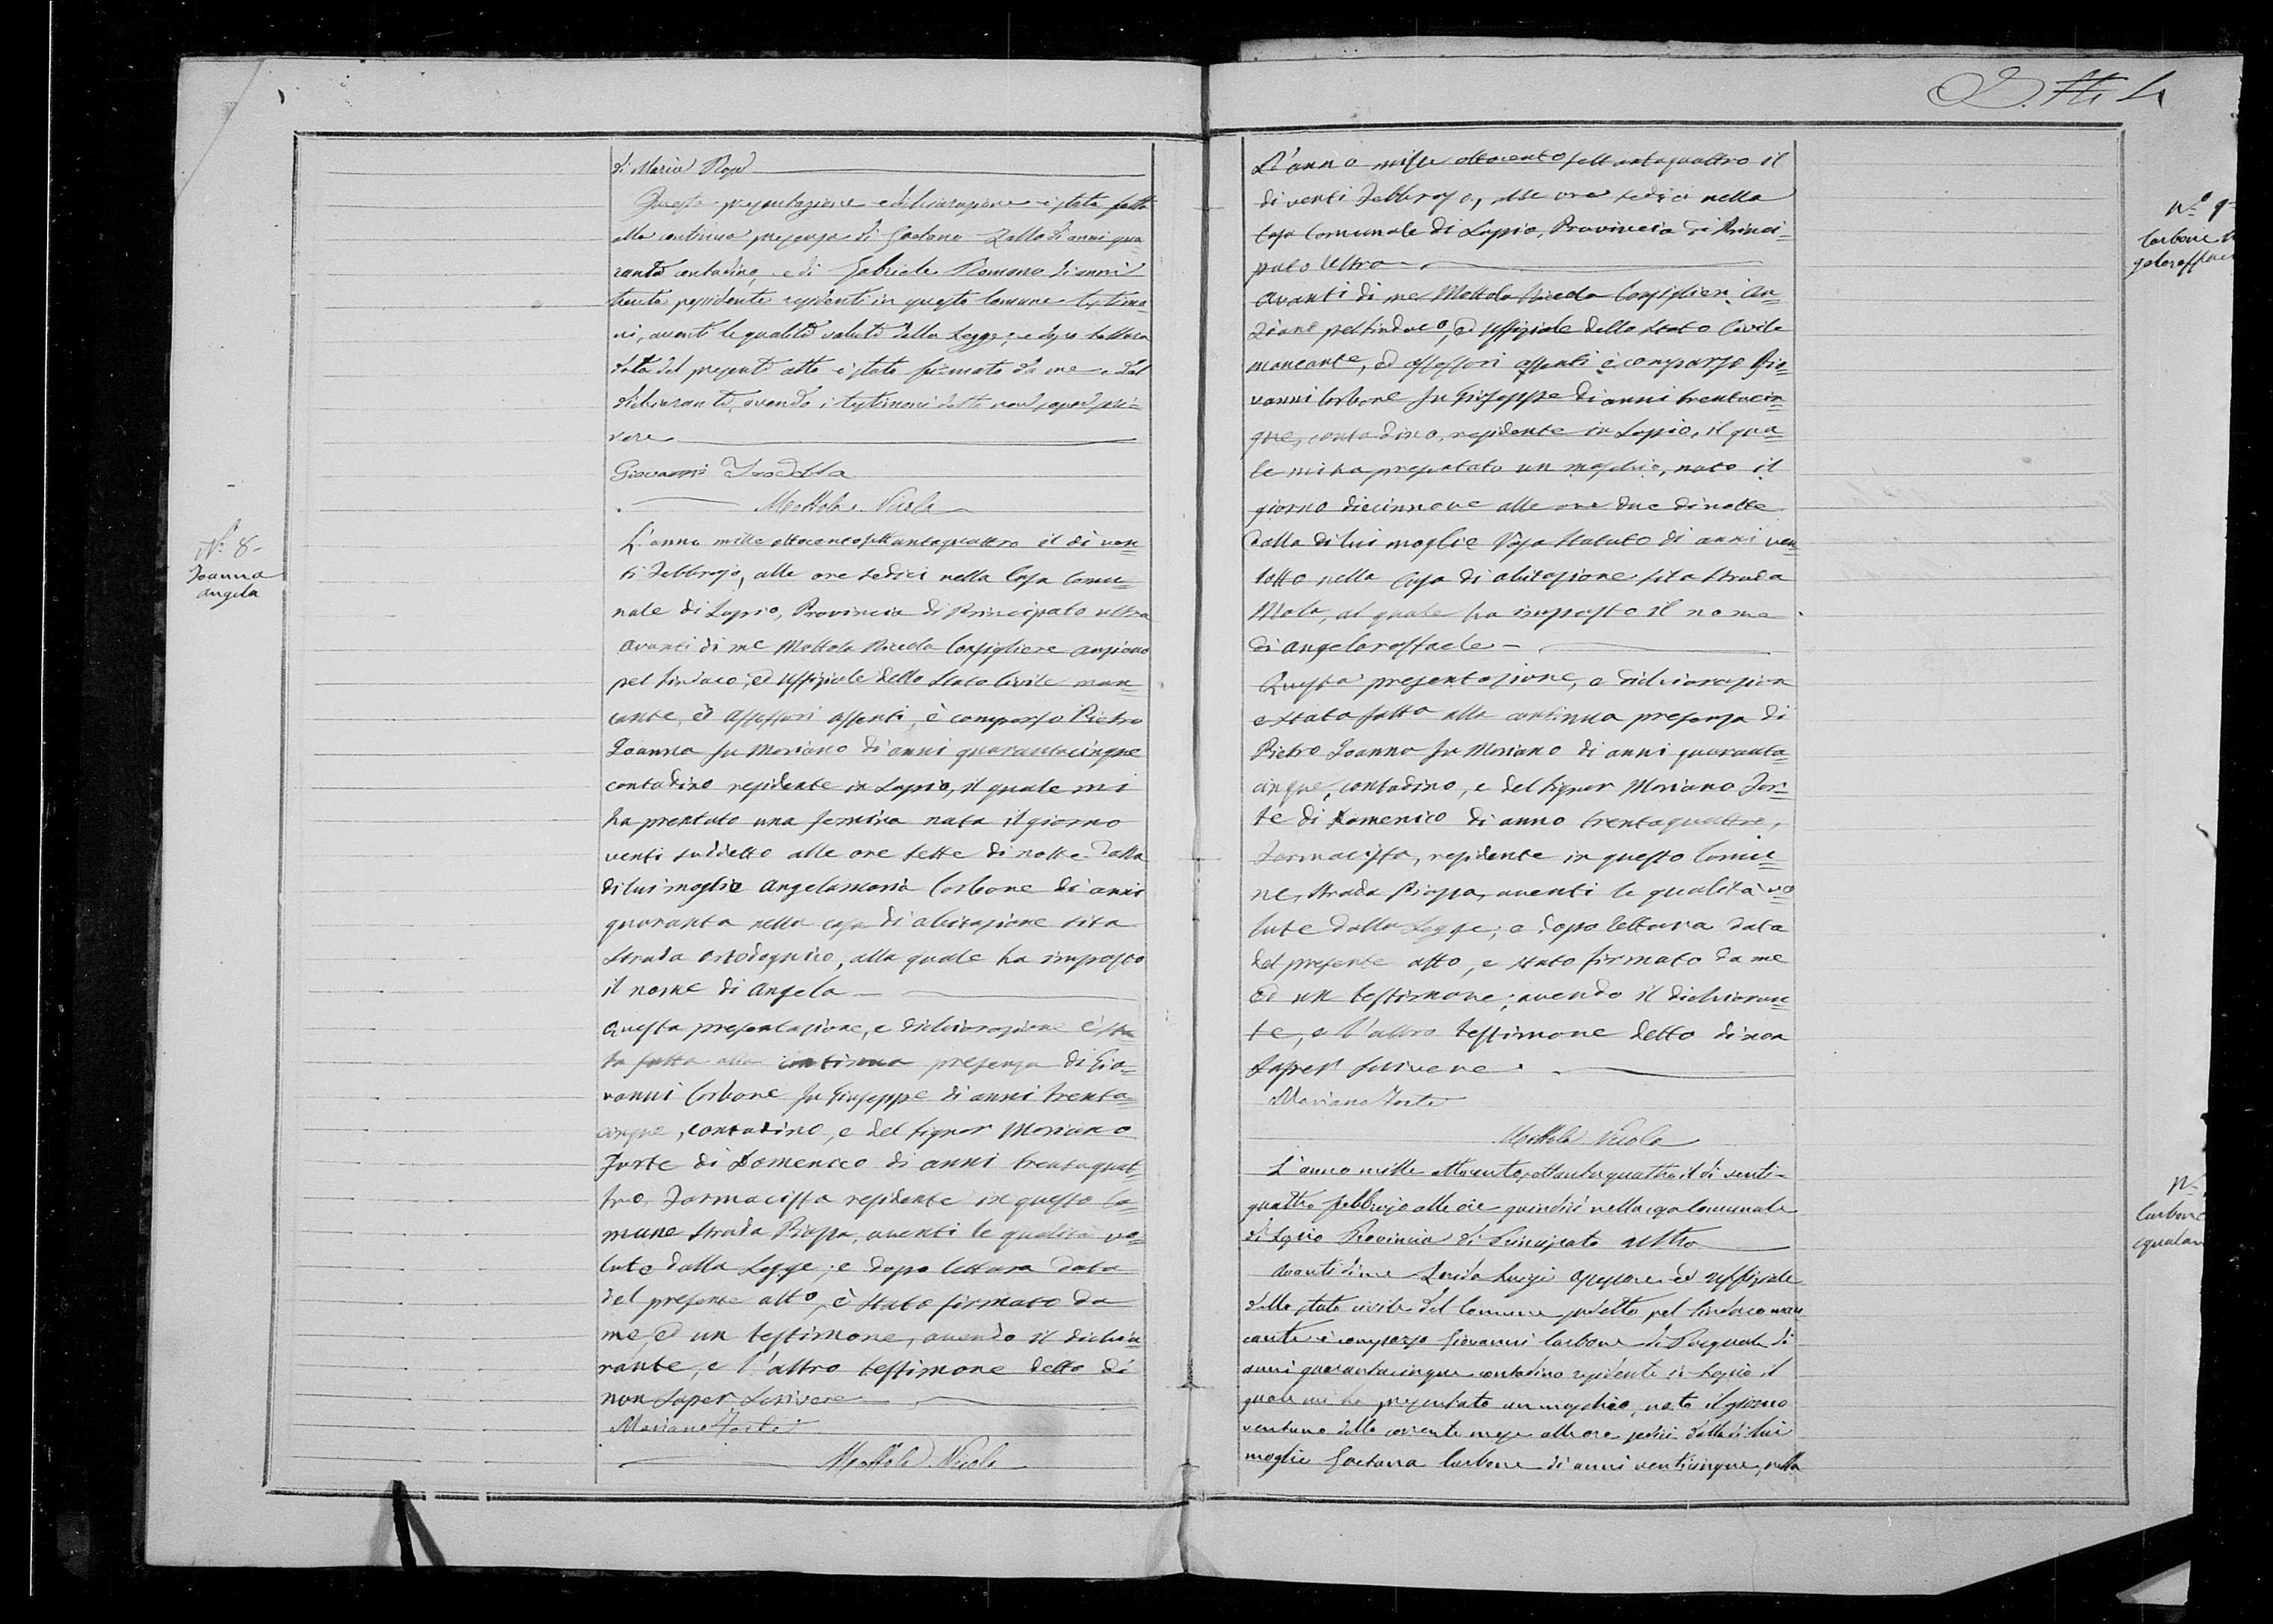 di Maria Rosa
Questa presentazione e dichiarazione è stata fatta
alla continua presenza di Gaetano Zallo di anni qua=
ranta contadino, e di Gabriele Romano di anni
trenta possidente residenti in questo Comune testimo=
ni, aventi le qualità volute dalla Legge; e dopo lettura
data del presente atto è stato firmato da me e dal
dichiarante, avendo i testimoni detto non saper scri=
vere
Giovanni
Mottola Nicola
N.º 8-
Joanna
Angela
L'anno mille ottocentosettantaquattro il dì ven=
ti Febbrajo, alle ore sedici nella Casa Comu=
nale di Lapio, Provincia di Principato Ultra
Avanti di me Mottola Nicola Consigliere anziano
pel Sindaco, ed Uffiziale dello Stato Civile man=
cante, ed assessori assenti, è comparso Pietro
Joanna fu Mariano di anni quarantacinque
contadino residente in Lapio, il quale mi
ha prentato una femina nata il giorno
venti suddetto alle ore sette di notte dalla
di lui moglie Angelamaria Carbone di anni
quaranta nella casa di abitazione sita
Strada Ortodognico, alla quale ha imposto
il nome di Angela
Questa presentazione, e dichiarazione è sta
ta fatta alla continua presenza di Gio=
vanni Carbone fu Giuseppe di anni trenta=
cinque, contadino, e del Signor Mariano
Forte di Domenico di anni trentaquat=
tro, Farmacista residente in questo Co=
mune Strada Piazza, aventi le qualità vo=
lute dalla Legge; e dopo lettura data
del presente atto, è stato firmato da
me, ed un testimone, avendo il dichia=
rante, e l'altro testimone detto di
non saper scrivere
Mariano Forte
Mottola Nicola
L'anno mille ottocentosettantaquattro il
dì venti Febbrajo, alle ore sedici nella
Casa Comunale di Lapio, Provincia di Princi=
pato Ultra
Avanti di me Mottola Nicola Consigliere An=
ziano pel Sindaco, ed Uffiziale dello Stato Civile
mancante, ed assessori assenti è comparso Gio=
vanni Carbone fu Giuseppe di anni trentacin=
que, contadino, residente in Lapio, il qua=
le mi ha presentato un maschio, nato il
giorno diecinnove alle ore due di notte
dalla di lui moglie Rosa Statuto di anni ven
totto nella Casa di abitazione sita Strada
Mola, al quale ha imposto il nome
di Angeloraffaele-
Questa presentazione, e dichiarazion
e stata fatta alla continua presenza di
Pietro Joanna fu Mariano di anni quaranta=
cinque, contadino, e del Signor Mariano For=
te di Domenico di anno trentaquattro,
Farmacista, residente in questo Comu=
ne, Strada Piazza, aventi le qualità vo=
lute dalla Legge; e dopo lettura data
del presente atto, e stato firmato da me
ed un testimone; avendo il dichiaran=
te, e l'altro testimone detto di non
saper scrivere
Mariano Forte
Mottola Nicola
L'anno mille ottocentosettantaquattro il dì venti-
quattro Febbrajo alle ore quindici nella casa Comunale
di Lapio Provincia di Principato Ultra
Avanti di me Luigi assessore ed uffiziale
dello stato civile del Comune sudetto, pel Sindaco man
cante è comparso Giovanni Carbone di Pasquale di
anni quarantacinque contadino residente in Lapio il
quale mi ha presentato un maschio, nato il giorno
ventuno dello corrente mese alle ore sedici dalla di lui
moglie Gaetana Carbone di anni venticinque, nella
Nº 9
Carbone
Nº
Carbone